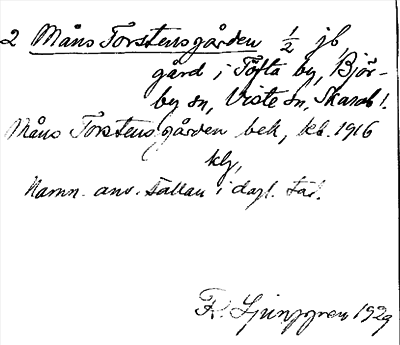 2 Måns Torstensgården 1/2 jb,
gård i Tofta by, Björ-
by sn, Viste hd, Skarab l.
Måns Torstensgården bek, kb. 1916
klg,
Namn. anv. sällan i dagl. tal.
F. Ljunggren 1929